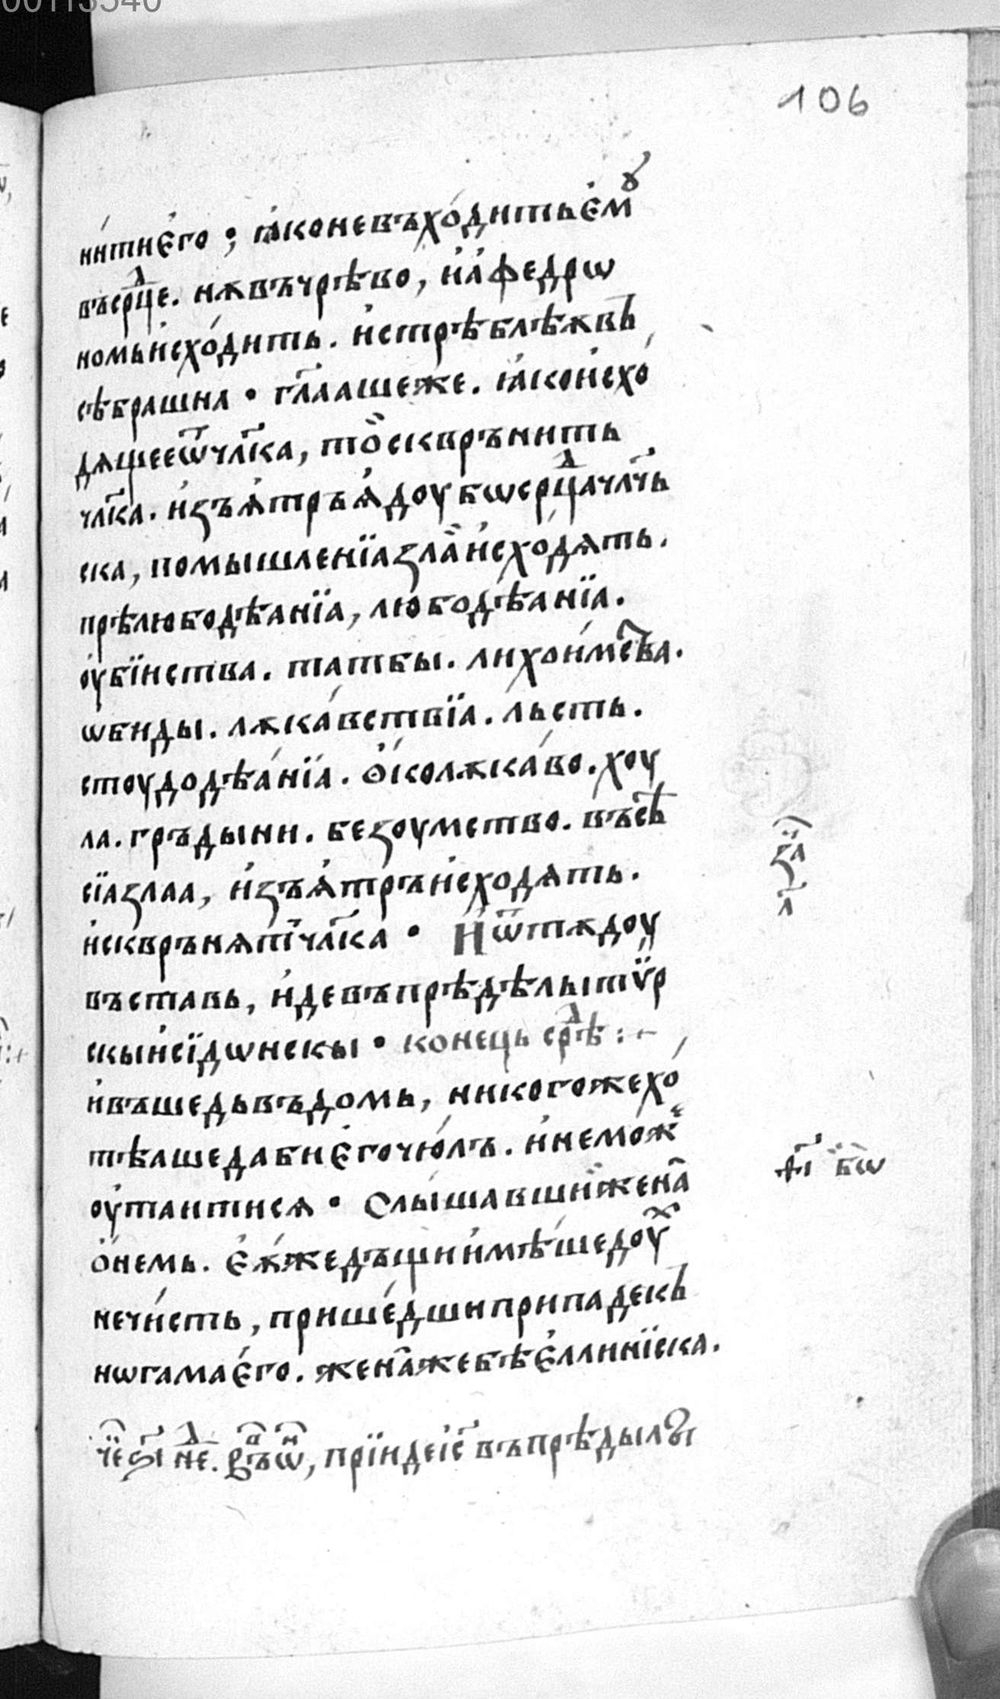 00113540
106
ни́тиѥ҆го ; ꙗ҆коневъхо́дитьѥ҆мꙋ
въсрⷣце. нѫвъчрѣво, и҆а҆федрѡ
номьи҆схо́дить. и҆стрѣблѣѫвь
сѣбрашна • гл҃аашеже. ꙗ҆кои҆схо́
дѧщееѿчл҃ка, то҆сквръни́ть
чл҃ка. и҆зъѫ҆тръѫ҆доубѡсрⷣцачл҃чь
ска, помышленїазлаа҆и҆схо́дѧть.
прѣлюбодѣанїа, любодѣанїа.
оу҆бїиства. татбы. лихои҆мⷭ҇тва.
ѡбиды. лѫка́вствїа. льсть.
стоудодѣа́нїа. ѻ҆́колѫка́во. хоу
ла. гръдыни. безоумство. въсѣ
сїазлаа, и҆зъѫ҆тръи҆сходѧть.
и҆скврънѧтⷭ҇чл҃ка • И҆ѿтѫдоу
въставь, и҆девъпрѣдѣлытѵ̈р
скыи҆сїдѡнскы • конець срⷣѣ : ~
и҆въшедьвъдомь, никогожехо́
тѣашедабиѥ҆гочю́лъ. и҆неможе
оу҆таитисѧ • Слы́шавшиⷤжена̀
ѻ҆немь. ѥ҆ѫ҆жедъщии҆мѣ́шедоуⷯ
нечи́сть, прише́дшиприпадекь
нѡгамаѥ҆го. жена̀жебѣѥ҆ллинїска.
за҃
л҃
чⷭ҇ѥ ѕ҃і неⷣ. въⷬ҇ѡⷩ, прїидеі҆с҃ въпрѣдылꙑ